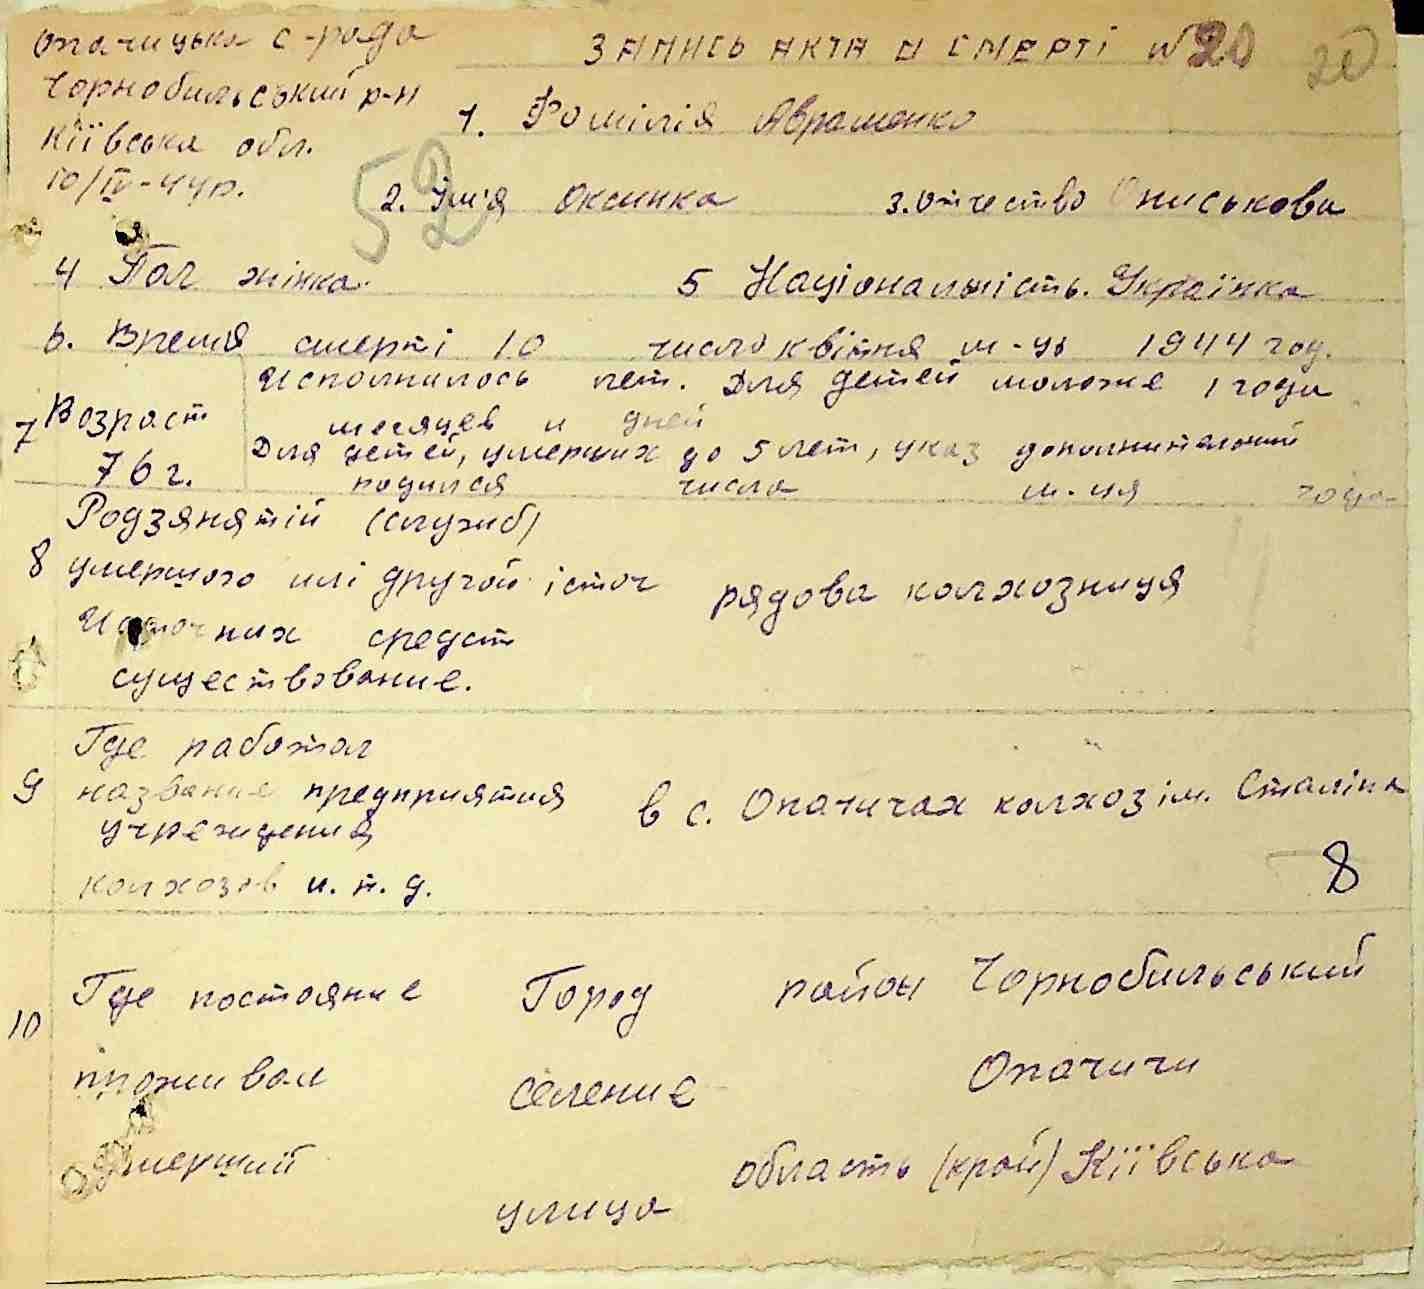 Опачицька с-рада
Чорнобильський р-н
Київська обл.
10/IV-44р.
ЗАПИСЬ АКТА О СМЕРТІ N 20
20
52
1. Фомілія Авраменко
2. Ім'я Оксинка 3. Отчество Ониськова
4 Пол жінка. 5 Національність. Українка
6. Время смерті 10 число квітня м-ця 1944 год.
7 Возраст 76 г.
Исполнилось лет. Для детей моложе 1 года
месяцев и дней
Для детей, умерших до 5 лет, указ дополнительний
родился числа м-ця года
8 Родзянятій (служб)
умершого илі другой істоч рядова колхозниця
Источних средст
существование.
9 Где работал
название предприятия в с. Опачичах колхоз ім. Сталіна
учреждения
колхозов и. т. д.
8
10 Где постояние Город район Чорнобильський
проживал селение Опачичи
умерший область (край) Київська
улица